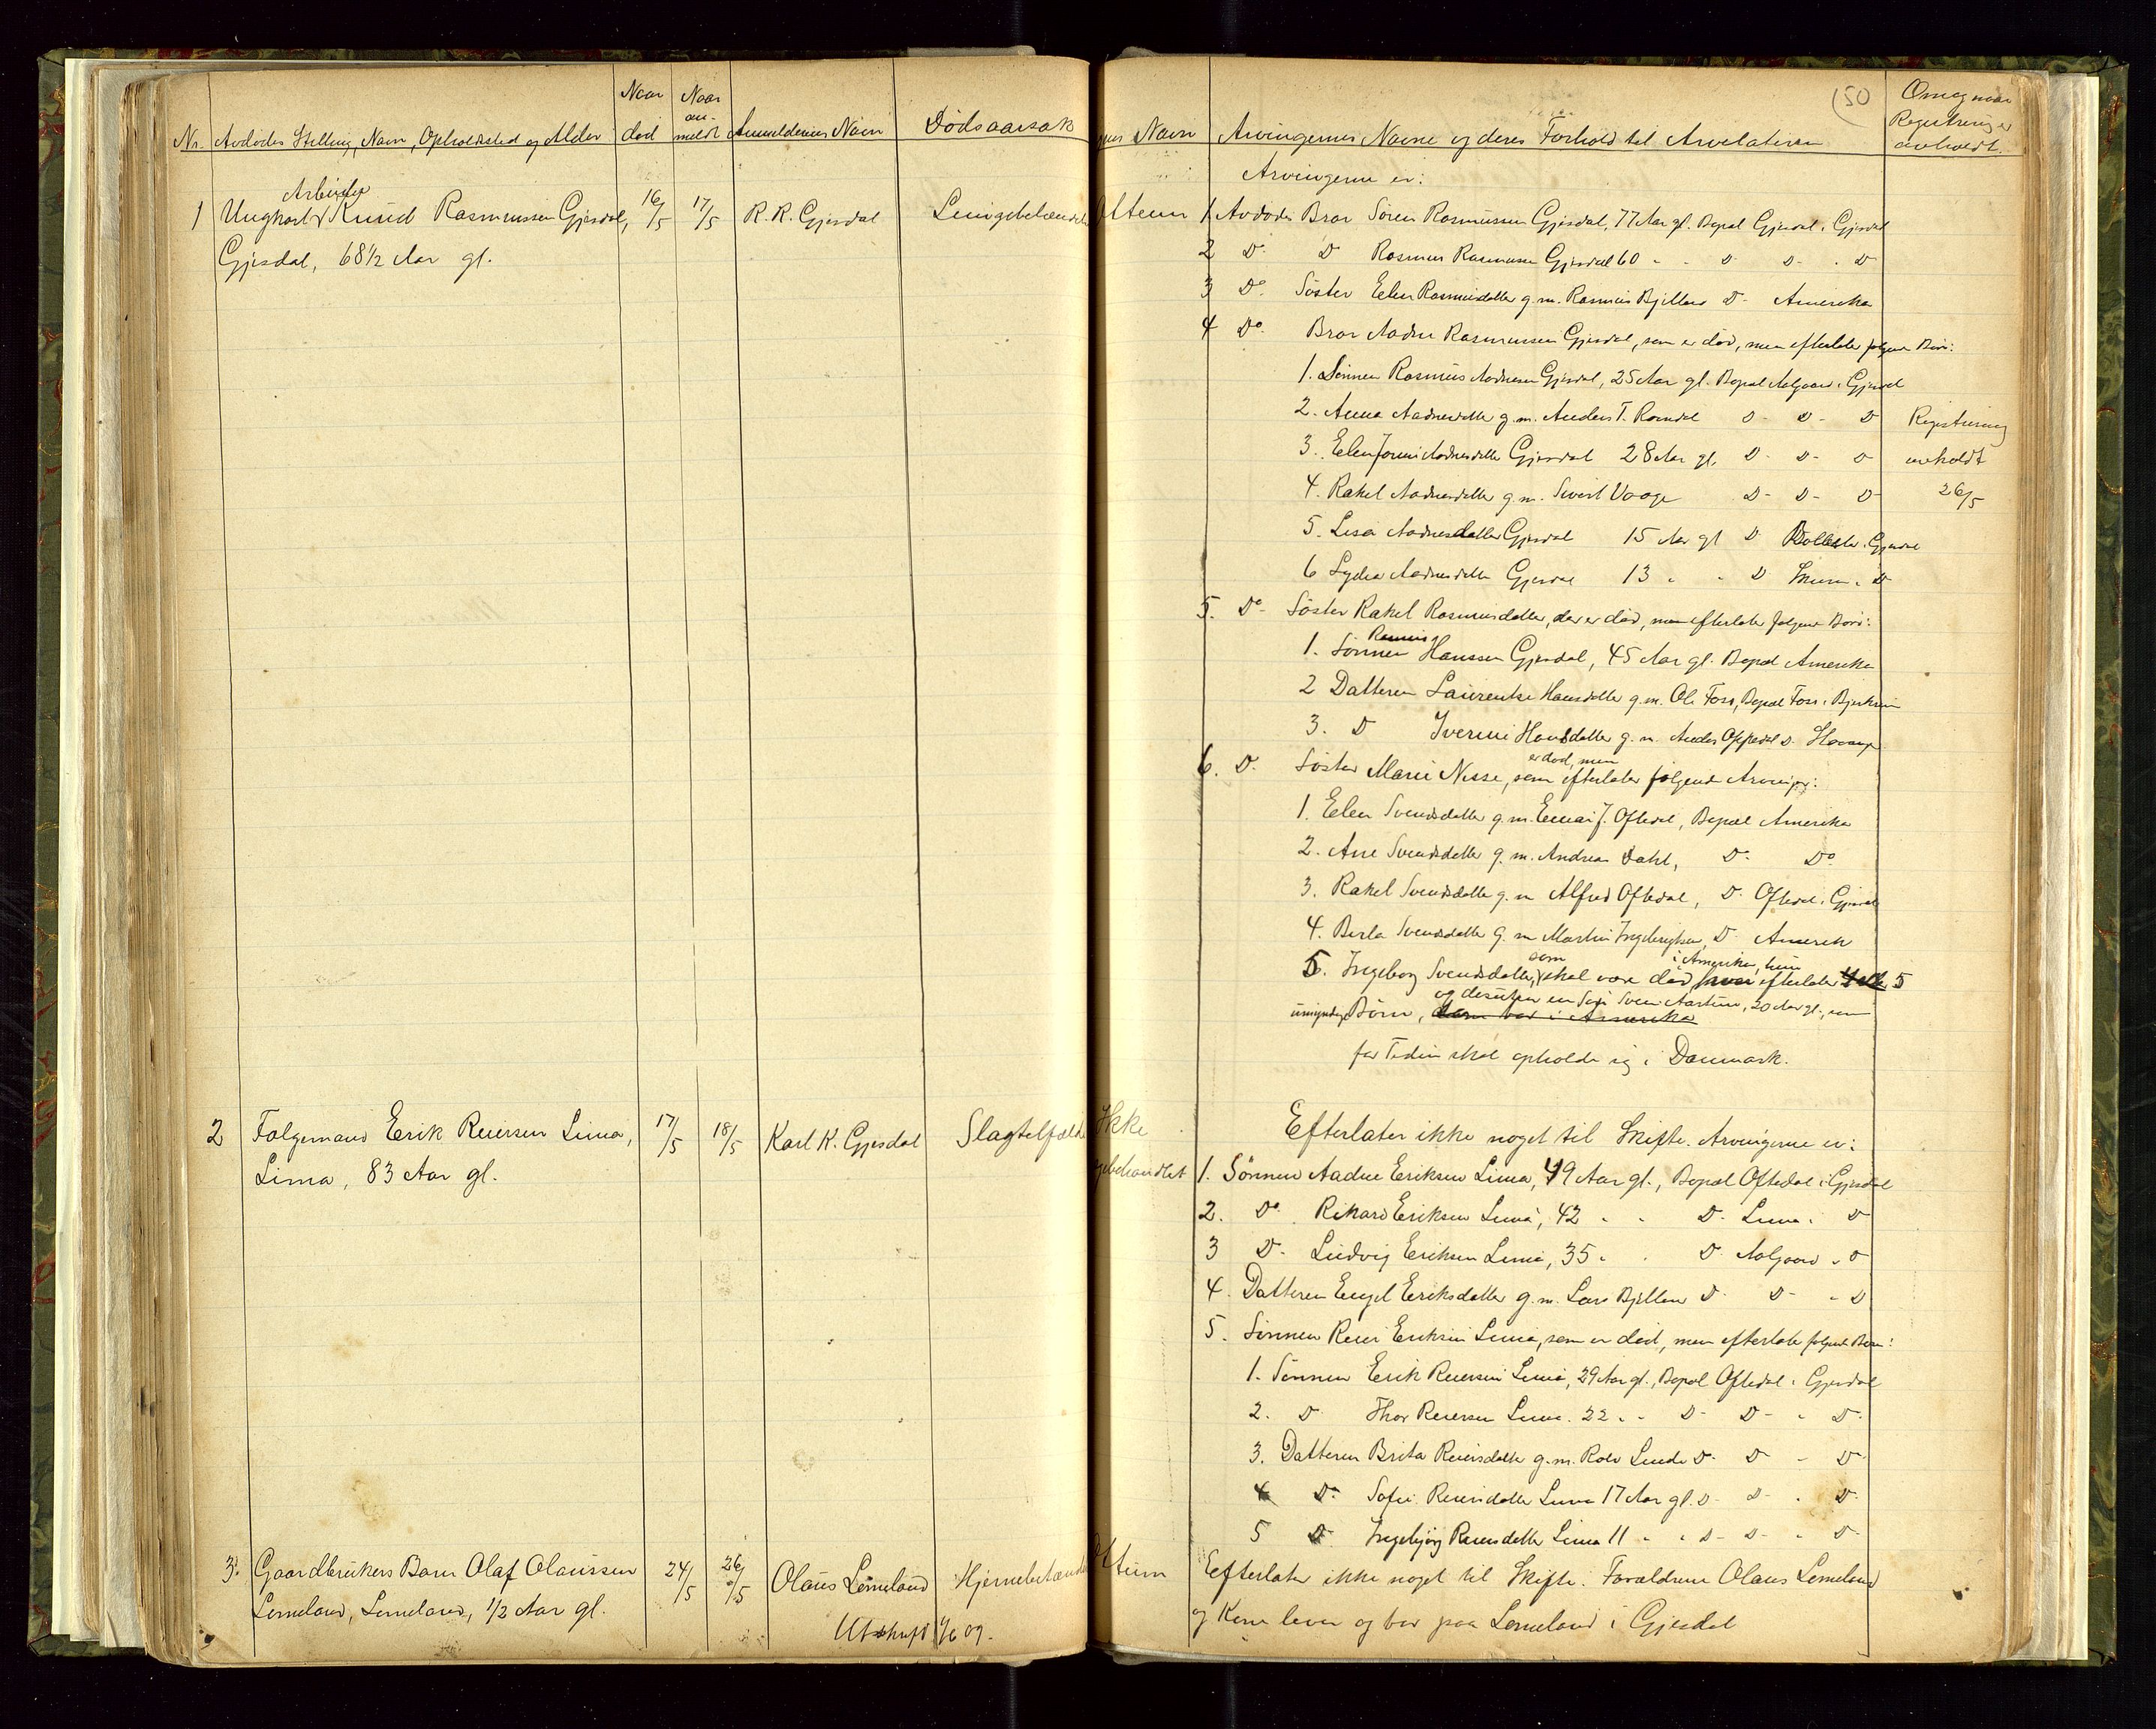 Nr. Avdødes Stilling, Navn, Opholdssted og Alder
Naar død
Naar an-meldt
Anmelderens Navn
Dødsaarsak
1 Ungkarl Arbeider Knud Rasmussen Gjesdal,
Gjesdal, 68 1/2 Aar gl.
16/5
17/5
R. R. Gjesdal
Lungebetændelse
2 Folgemand Erik Reiersen Lima,
Lima, 83 Aar gl.
17/5
18/5
Karl K. Gjesdal
Slagtelfælde
3. Gaardbrukers Barn Olaf Olaussen
Lemeland, Lemeland, 1/2 Aar gl.
24/5
26/5
Olaus Lemeland
Hjernebetænd
Utskrift 1/6 09.
150
Navn
Arvingernes Navne og deres Forhold til Arveladeren
Om og naar
Registrering er
avholdt.
Arvingerne er:
1 Avdødes Bror Sören Rasmussen Gjesdal, 77 Aar gl. Bopæl Gjesdal i Gjesdal
2 Do Do Rasmus Rasmussen Gjesdal 60 " " Do Do " Do
3 Do Søster Elen Rasmusdatter g. m. Rasmus Bjelland Do Amerika
4 Do Bror Aadne Rasmussen Gjesdal, som er død, men efterlater følgende Børn:
1. Sønnen Rasmus Aadnesen Gjesdal, 25 Aar gl. Bopæl Aalgaard i Gjesdal
2. Anna Aadnesdatter g. m. Anders T. Do Do Do
Registrering
3. Elen Aadnesdatter Gjesdal 28 Aar gl. Do Do Do
avholdt
4. Rakel Aadnesdatter g. m. Sivert Vaage Do Do Do
26/5
5. Lisa Aadnesdatter Gjesdal 15 Aar gl Do i Gjesdal
6 Lydia Aadnesdatter Gjesdal 13 " " Do i Do
5. Do Søster Rakel Rasmusdatter, der er død, men efterlater følgende Børn:
1. Sønnen Rasmus Hanssen Gjesdal, 45 Aar gl. Bopæl Amerika
2 Datteren Laurentse Hansdatter g. m. Ole Foss, Bopæl Foss i Bjerkreim
3. Do Iverine Hansdatter g. m. Anders Oppedal Do
6. Do Søster Marie Nesse, som er død, men efterlater følgende Arvinger:
1. Elen Svendsdatter g. m. Einar J. Oftedal, Bopæl Amerika
2. Ane Svendsdatter g. m. Andreas Dahl, Do Do
3. Rakel Svendsdatter g. m Alfred Oftedal, Do Oftedal i Gjesdal
4. Berta Svendsdatter g. m Martin Ingebrigtsen, Do Amerika
5. Ingeborg Svendsdatter, som skal være død i Amerika, hun efterlater 5
umyndige Børn, og desuten en Søn Sven Aarstein, 20 Aar gl., som
for Tiden skal opholde sig i Danmark.
Ikke
lægebehandlet
Efterlater ikke noget til Skifte. Arvingerne er:
1. Sønnen Aadne Eriksen Lima, 49 Aar gl., Bopæl Oftedal i Gjesdal
2. Do Rikard Eriksen Lima, 42 " " Do Lima i Do
3 Do Ludvig Eriksen Lima, 35 " " Do Aalgaard " Do
4. Datteren Engel Eriksdatter g. m. Lars Bjelland Do Do " Do
5. Sønnen Reier Eriksen Lima, som er død, men efterlater følgende Børn:
1. Sønnen Erik Reiersen Lima, 29 Aar gl., Bopæl Oftedal i Gjesdal
2. Do Thor Reiersen Lima. 22 " " Do Do " Do
3. Datteren Brita Reiersdatter g. m. Rolv Lende Do Do " Do
4 Do Sofie Reiersdatter Lima 17 Aar gl. Do Do " Do
5 Do Ingebjørg Reiersdatter Lima 11 " " Do Do " Do
Efterlater ikke noget til Skifte. Forældrene Olaus Lemeland
og Karen lever og bor paa Lemeland i Gjesdal